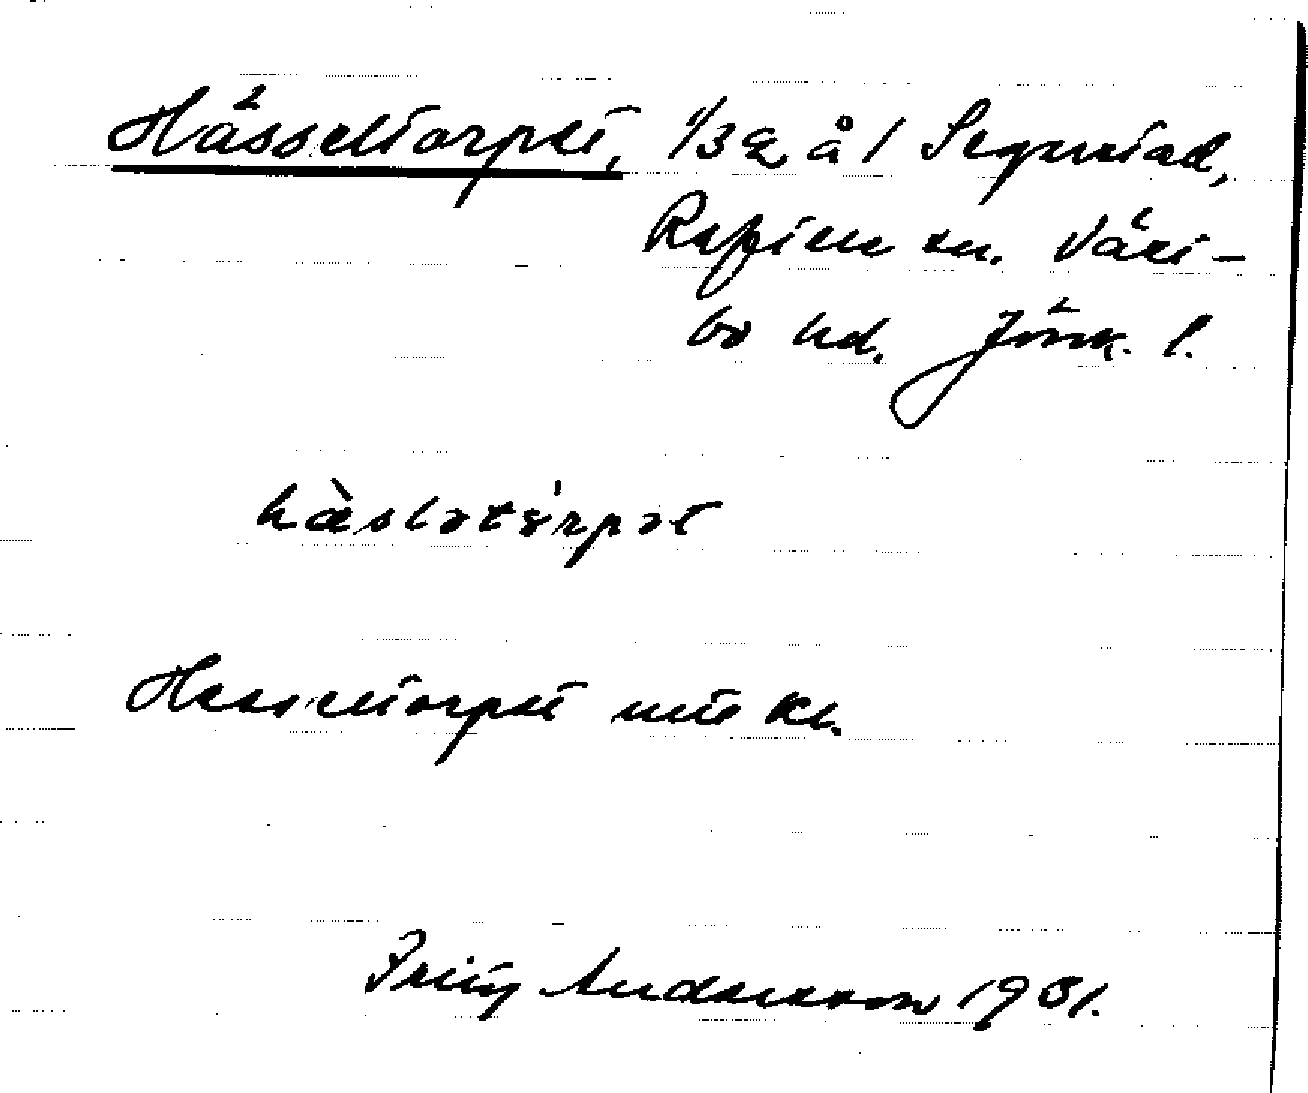 Hässeltorpet, 1/32 å 1 Segerstad,
Reftele sn. Väst-
bo hd. Jönk. l.
hàslatŕpət
Hesseltorpet
Fritz Andersson 1931.